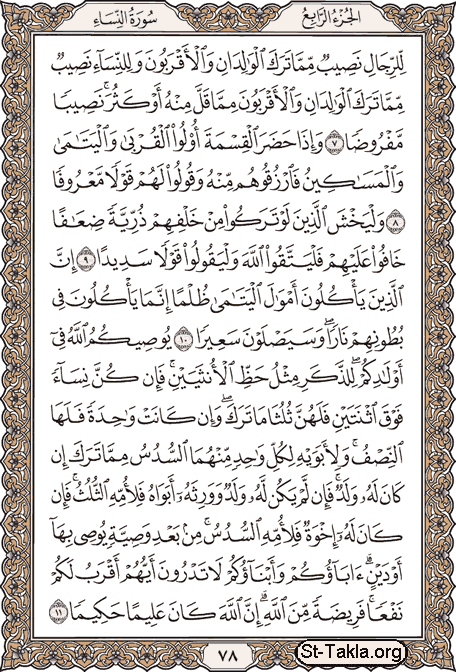 الجُزْءُ الرَّابِعُ
سُورَةُ النِّسَاءِ
لِّلرِّجَالِ نَصِيبٌ مِّمَّا تَرَكَ ٱلْوَٰلِدَانِ وَٱلْأَقْرَبُونَ وَلِلنِّسَآءِ نَصِيبٌ
مِّمَّا تَرَكَ ٱلْوَٰلِدَانِ وَٱلْأَقْرَبُونَ مِمَّا قَلَّ مِنْهُ أَوْ كَثُرَ ۚ نَصِيبًا
مَّفْرُوضًا ٧ وَإِذَا حَضَرَ ٱلْقِسْمَةَ أُو۟لُوا۟ ٱلْقُرْبَىٰ وَٱلْيَتَٰمَىٰ
وَٱلْمَسَٰكِينُ فَٱرْزُقُوهُم مِّنْهُ وَقُولُوا۟ لَهُمْ قَوْلًا مَّعْرُوفًا
٨ وَلْيَخْشَ ٱلَّذِينَ لَوْ تَرَكُوا۟ مِنْ خَلْفِهِمْ ذُرِّيَّةً ضِعَٰفًا
خَافُوا۟ عَلَيْهِمْ فَلْيَتَّقُوا۟ ٱللَّهَ وَلْيَقُولُوا۟ قَوْلًا سَدِيدًا ٩ إِنَّ
ٱلَّذِينَ يَأْكُلُونَ أَمْوَٰلَ ٱلْيَتَٰمَىٰ ظُلْمًا إِنَّمَا يَأْكُلُونَ فِى
بُطُونِهِمْ نَارًا ۖ وَسَيَصْلَوْنَ سَعِيرًا ١٠ يُوصِيكُمُ ٱللَّهُ فِىٓ
أَوْلَٰدِكُمْ ۖ لِلذَّكَرِ مِثْلُ حَظِّ ٱلْأُنثَيَيْنِ ۚ فَإِن كُنَّ نِسَآءً
فَوْقَ ٱثْنَتَيْنِ فَلَهُنَّ ثُلُثَا مَا تَرَكَ ۖ وَإِن كَانَتْ وَٰحِدَةً فَلَهَا
ٱلنِّصْفُ ۚ وَلِأَبَوَيْهِ لِكُلِّ وَٰحِدٍ مِّنْهُمَا ٱلسُّدُسُ مِمَّا تَرَكَ إِن
كَانَ لَهُۥ وَلَدٌ ۚ فَإِن لَّمْ يَكُن لَّهُۥ وَلَدٌ وَوَرِثَهُۥٓ أَبَوَاهُ فَلِأُمِّهِ ٱلثُّلُثُ ۚ فَإِن
كَانَ لَهُۥٓ إِخْوَةٌ فَلِأُمِّهِ ٱلسُّدُسُ ۚ مِنۢ بَعْدِ وَصِيَّةٍ يُوصِى بِهَآ
أَوْ دَيْنٍ ۗ ءَابَآؤُكُمْ وَأَبْنَآؤُكُمْ لَا تَدْرُونَ أَيُّهُمْ أَقْرَبُ لَكُمْ
نَفْعًا ۚ فَرِيضَةً مِّنَ ٱللَّهِ ۗ إِنَّ ٱللَّهَ كَانَ عَلِيمًا حَكِيمًا ١١
٧٨
St-Takla.org